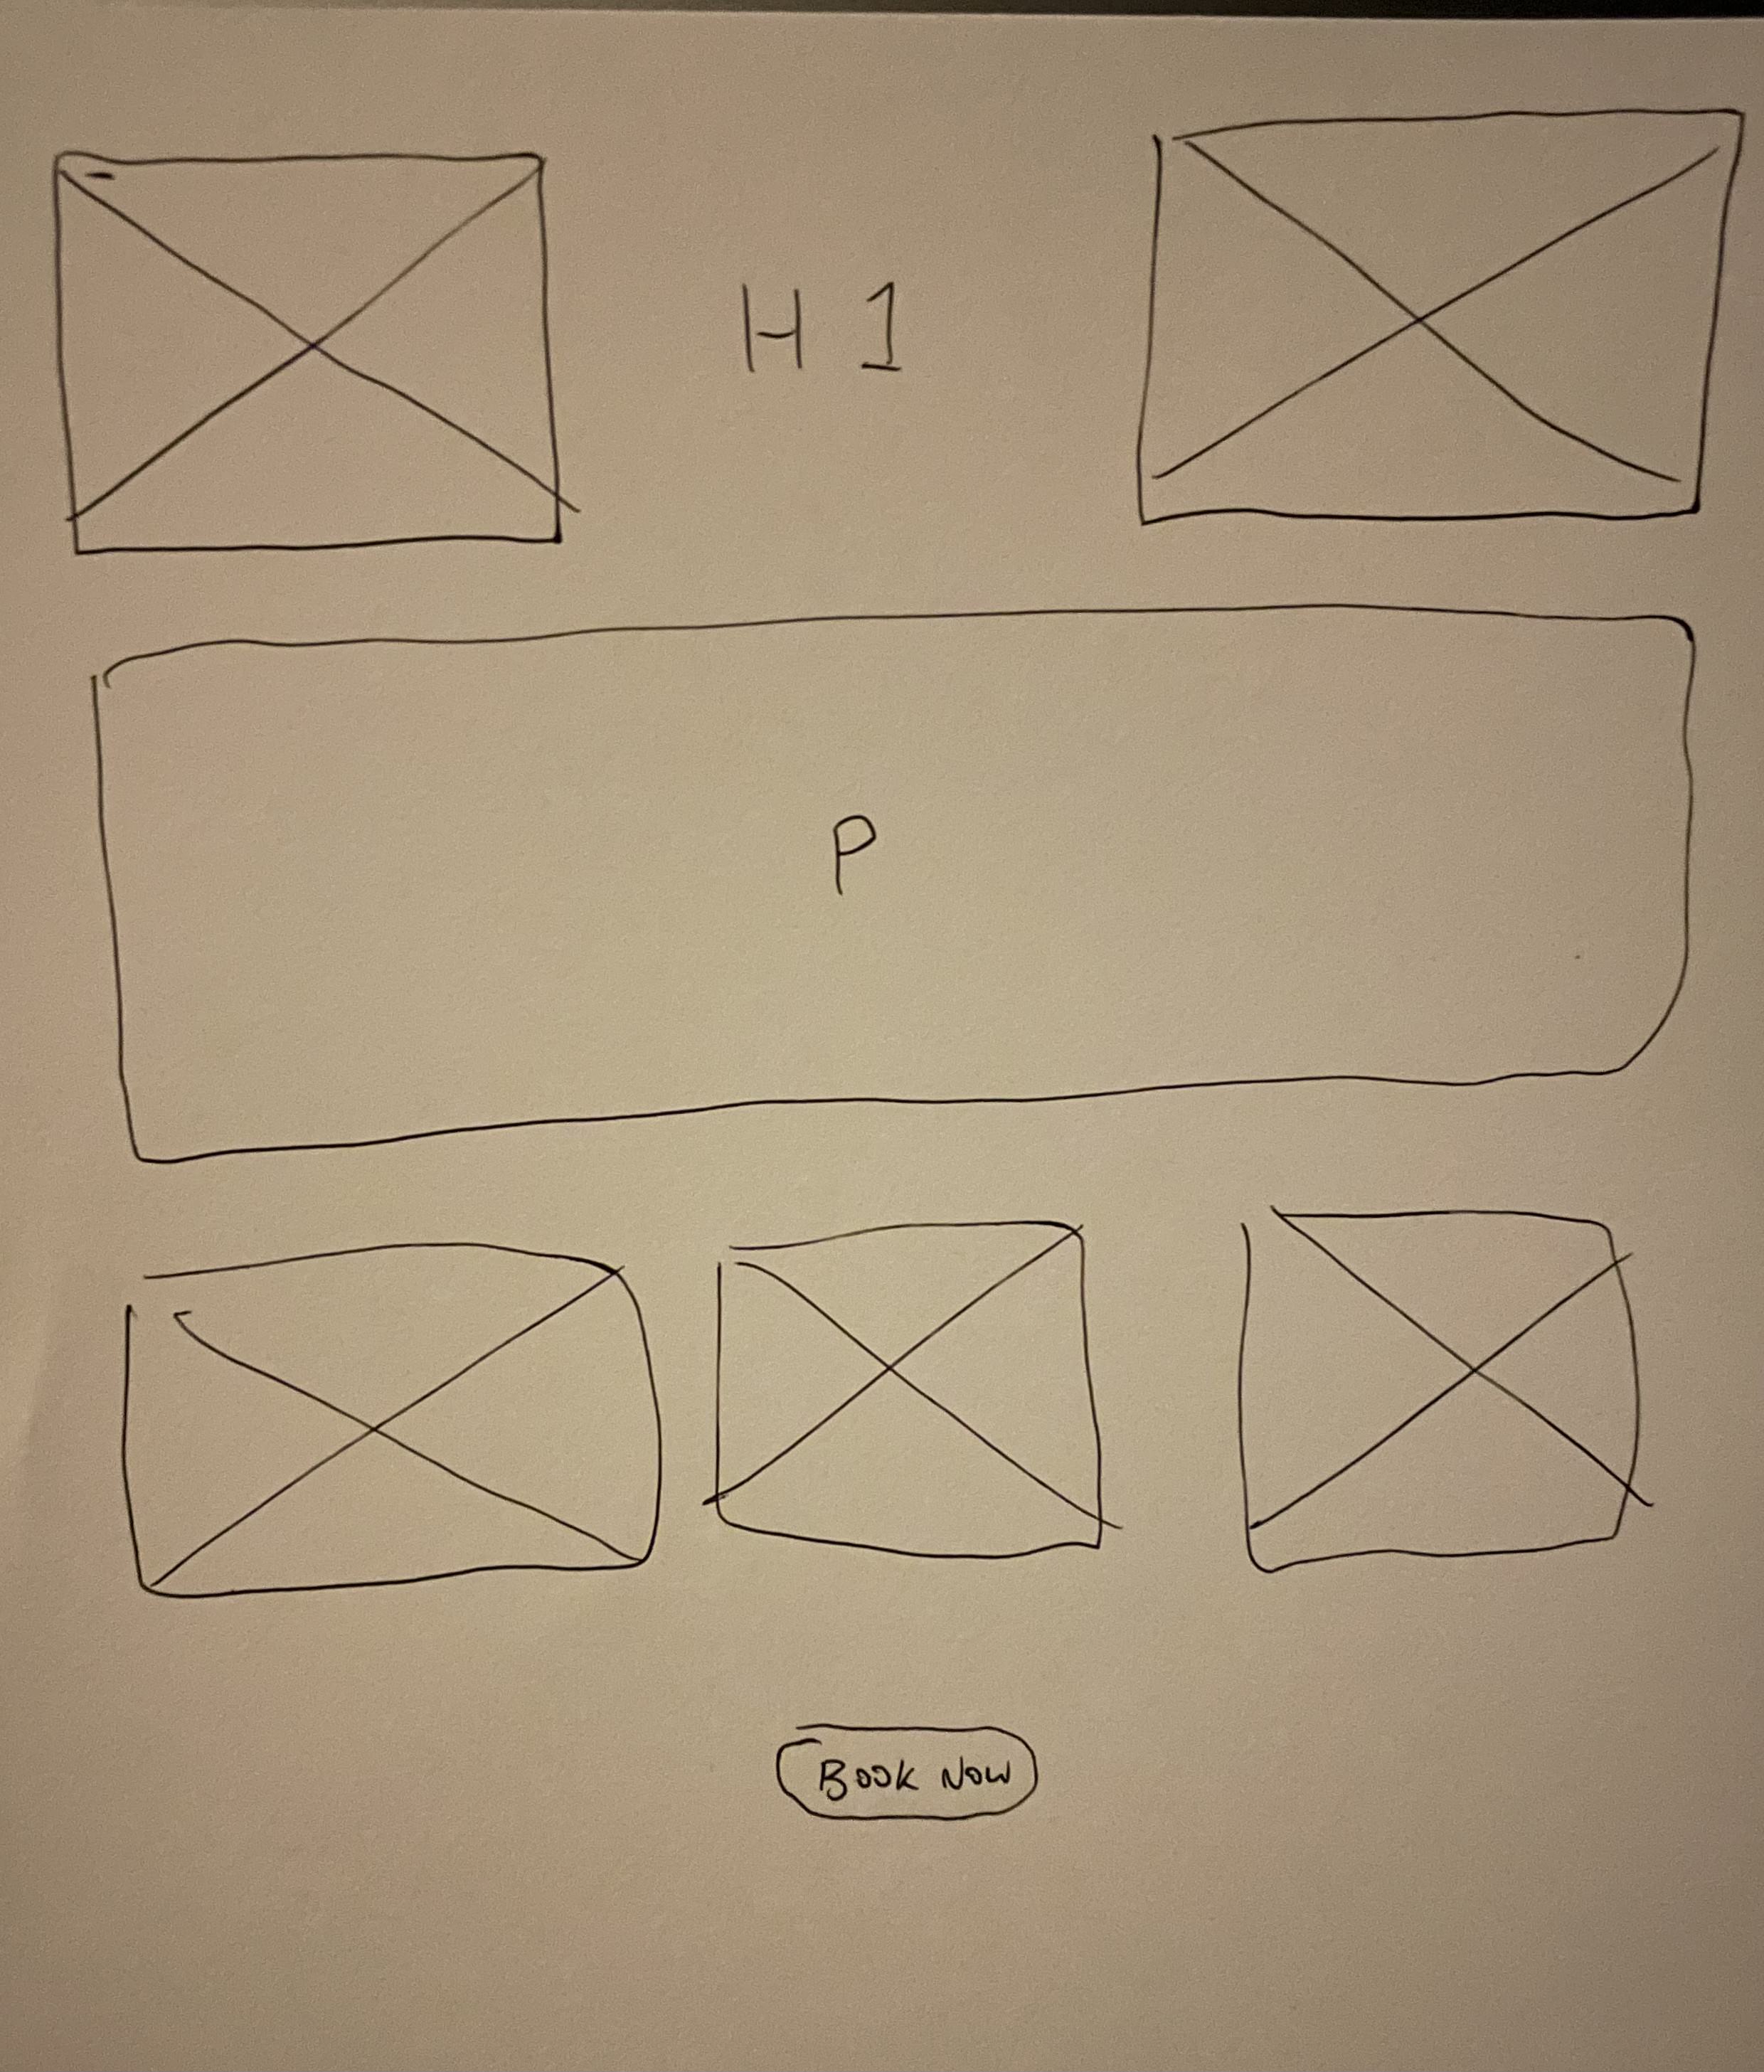 H 1
P
BOOK NOW